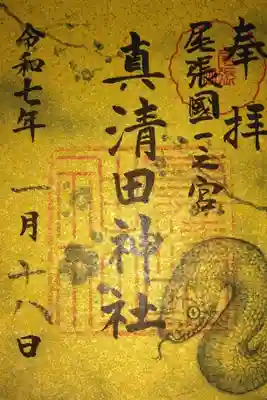 奉拝
尾張國一之宮
真清田神社
令和七年
一月十八日